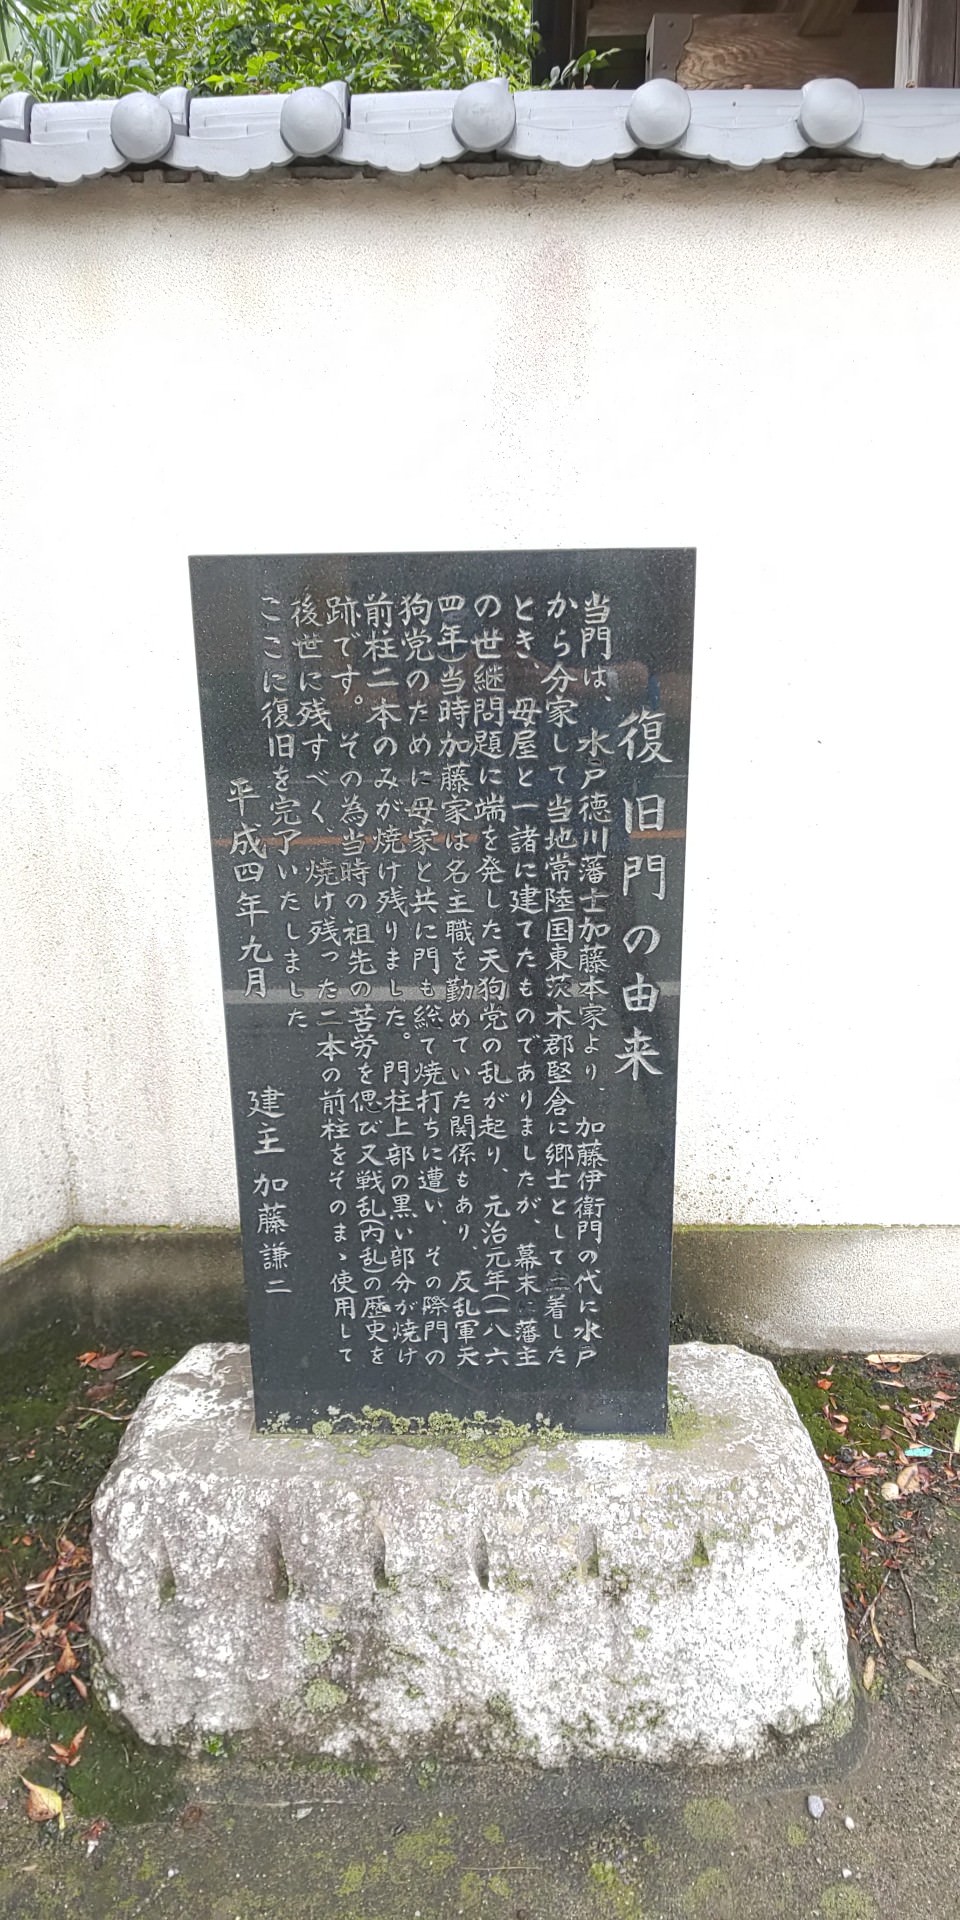 復旧門の由来
当門は、水戸徳川藩士加藤本家より、加藤伊衛門の代に水戸
から分家して当地常陸国東茨木郡堅倉に郷士として土着した
とき 母屋と一諸に建てたものでありましたが、幕末に藩主
の世継問題に端を発した天狗党の乱が起り、元治元年(一八六
四年)当時加藤家は名主職を勤めていた関係もあり、反乱軍天
狗党のために母家と共に門も総て焼打ちに遭い、その際門の
前柱二本のみが焼け残りました。門柱上部の黒い部分が焼け
跡です。その為当時の祖先の苦労を偲び又戦乱(内乱)の歴史を
後世に残すべく、焼け残った二本の前柱をそのまゝ使用して
ここに復旧を完了いたしました
平成四年九月 建主 加藤謙二